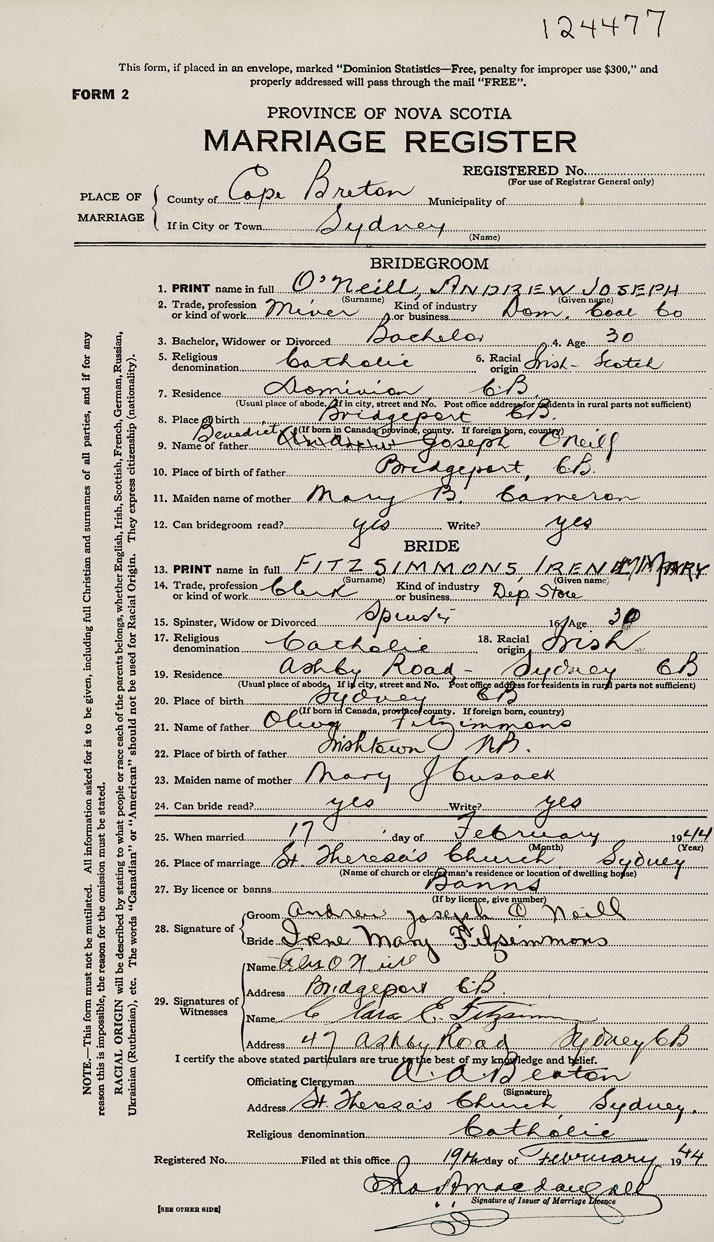 124477
This form, if placed in an envelope, marked "Dominion Statistics—Free, penalty for improper use $300," and
properly addressed will pass through the mail "FREE".
FORM 2
PROVINCE OF NOVA SCOTIA
MARRIAGE REGISTER
REGISTERED No.
(For use of Registrar General only)
PLACE OF MARRIAGE
County of Cape Breton Municipality of
If in City or Town Sydney
(Name)
BRIDEGROOM
1. PRINT name in full O'Neill, ANDREW JOSEPH
(Surname) (Given name)
2. Trade, profession or kind of work Miner Kind of industry or business Dom. Coal Co
3. Bachelor, Widower or Divorced Bachelor 4. Age 30
5. Religious denomination Catholic 6. Racial origin Irish-Scotch
7. Residence Dominion CB
(Usual place of abode. If in city, street and No. Post office address for residents in rural parts not sufficient)
8. Place of birth Bridgeport C.B.
(If born in Canada, province, county. If foreign born, country)
9. Name of father Benedict Joseph O'Neill
10. Place of birth of father Bridgeport, C.B.
11. Maiden name of mother Mary B. Cameron
12. Can bridegroom read? yes Write? yes
BRIDE
13. PRINT name in full FITZSIMMONS, IRENE MARY
(Surname) (Given name)
14. Trade, profession or kind of work Clerk Kind of industry or business Dep Store
15. Spinster, Widow or Divorced Spinster 16. Age 30
17. Religious denomination Catholic 18. Racial origin Irish
19. Residence Ashby Road - Sydney CB
(Usual place of abode. If in city, street and No. Post office address for residents in rural parts not sufficient)
20. Place of birth Sydney CB
(If born in Canada, province, county. If foreign born, country)
21. Name of father Fitzsimmons
22. Place of birth of father Irishtown N.B.
23. Maiden name of mother Mary J Cusack
24. Can bride read? yes Write? yes
25. When married 17 day of February 1944
(Month) (Year)
26. Place of marriage St. Theresa's Church Sydney
(Name of church or clergyman's residence or location of dwelling house)
27. By licence or banns Banns
(If by licence, give number)
28. Signature of
Groom Andrew Joseph O'Neill
Bride Irene Mary Fitzsimmons
29. Signatures of Witnesses
Name O'Neill
Address Bridgeport C.B.
Name Clara E. Fitzsimmons
Address 47 Ashby Road Sydney CB
I certify the above stated particulars are true to the best of my knowledge and belief.
Officiating Clergyman A. A. Beaton
(Signature)
Address St. Theresa's Church Sydney.
Religious denomination Catholic
Registered No. Filed at this office 19th day of February 1944
Signature of Issuer of Marriage Licence
[SEE OTHER SIDE]
NOTE.—This form must not be mutilated. All information asked for is to be given, including full Christian and surnames of all parties, and if for any
reason this is impossible, the reason for the omission must be stated.
RACIAL ORIGIN will be described by stating to what people or race each of the parents belongs, whether English, Irish, Scottish, French, German, Russian,
Ukrainian (Ruthenian), etc. The words "Canadian" or "American" should not be used for Racial Origin. They express citizenship (nationality).